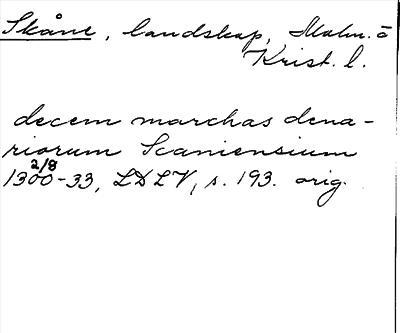 Skåne, landskap, Malm. o
Krist. l.
decem marchas dena-
riorum Scaniensium
2/8
1300-33, LDLV, s. 193. orig.